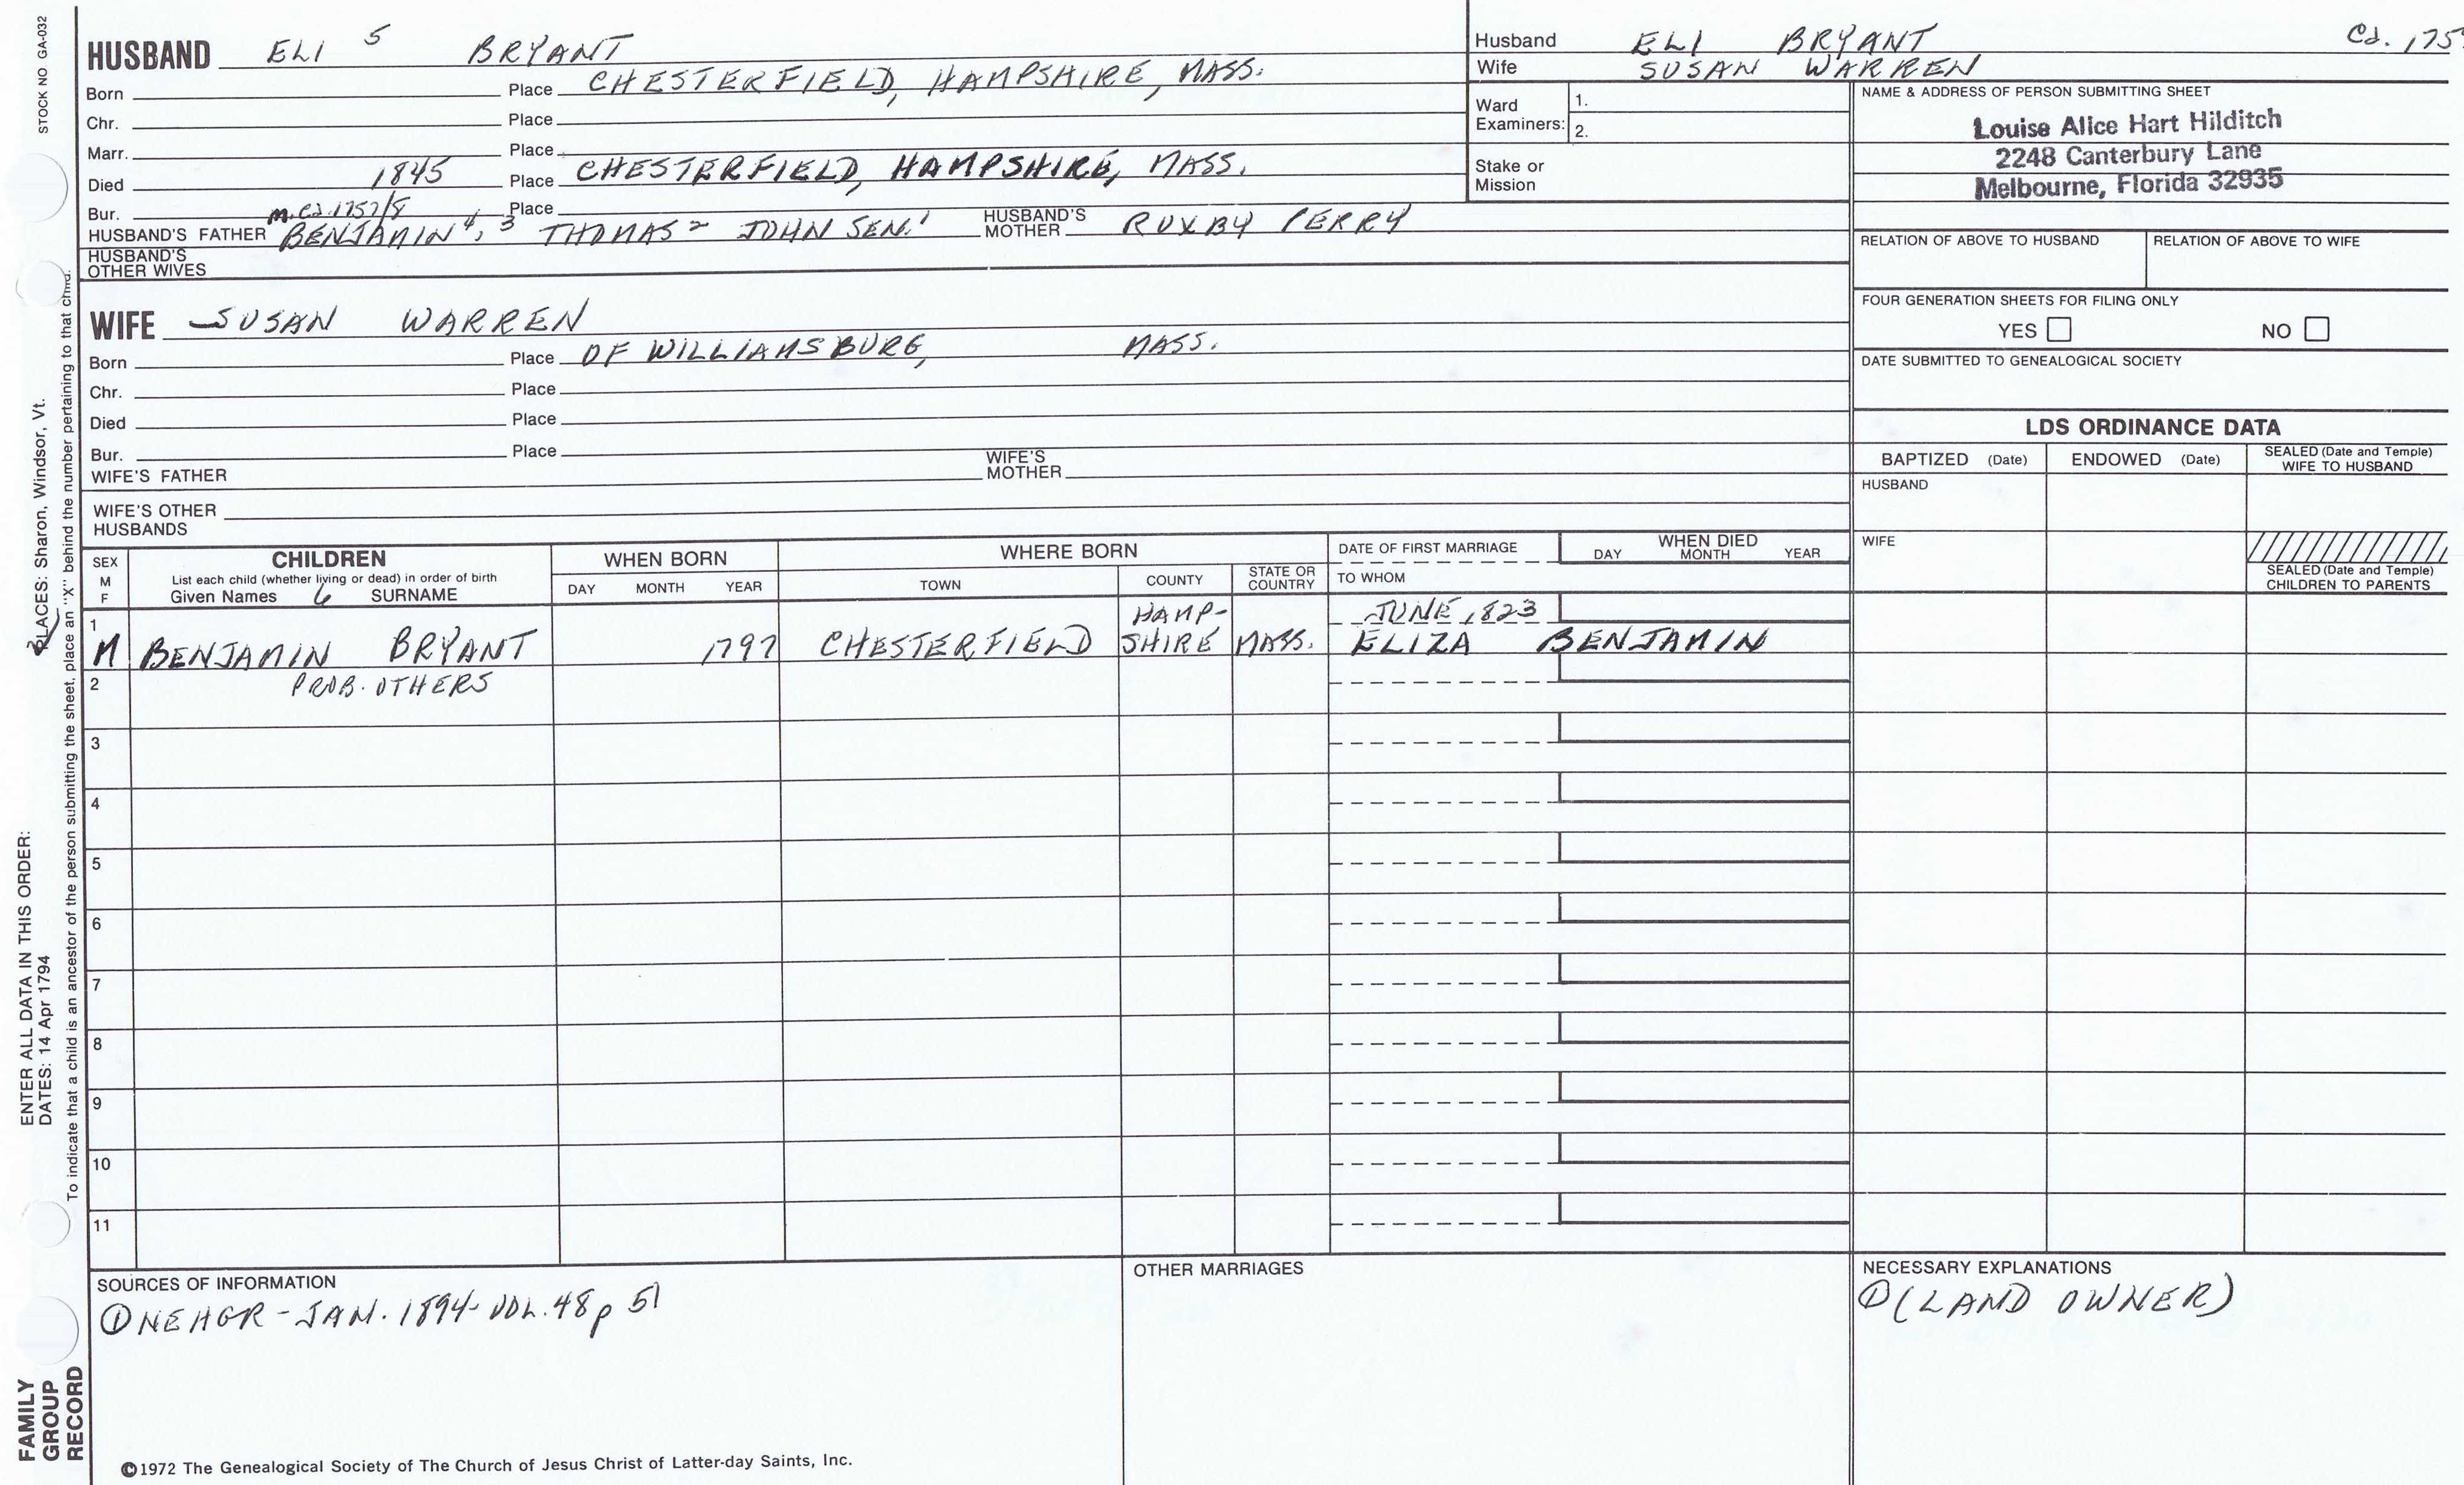 STOCK NO GA-032
HUSBAND ELI 5 BRYANT
Born Place CHESTERFIELD, HAMPSHIRE, MASS.
Chr. Place
Marr. Place
Died 1845 Place CHESTERFIELD, HAMPSHIRE, MASS.
Bur. m.cd.1757/8 Place
HUSBAND'S FATHER BENJAMIN 4, 3 THOMAS 2 JOHN SEN. 1 HUSBAND'S MOTHER RUXBY PERRY
HUSBAND'S OTHER WIVES
WIFE SUSAN WARREN
Born Place OF WILLIAMSBURG, MASS.
Chr. Place
Died Place
Bur. Place
WIFE'S FATHER WIFE'S MOTHER
WIFE'S OTHER HUSBANDS
Husband ELI BRYANT Cd. 175
Wife SUSAN WARREN
Ward Examiners: 1.
2.
Stake or Mission
NAME & ADDRESS OF PERSON SUBMITTING SHEET
Louise Alice Hart Hilditch
2248 Canterbury Lane
Melbourne, Florida 32935
RELATION OF ABOVE TO HUSBAND RELATION OF ABOVE TO WIFE
FOUR GENERATION SHEETS FOR FILING ONLY
YES NO
DATE SUBMITTED TO GENEALOGICAL SOCIETY
LDS ORDINANCE DATA
BAPTIZED (Date) ENDOWED (Date) SEALED (Date and Temple) WIFE TO HUSBAND
HUSBAND
WIFE
SEALED (Date and Temple) CHILDREN TO PARENTS
SEX M F
CHILDREN
List each child (whether living or dead) in order of birth
Given Names 6 SURNAME
WHEN BORN
DAY MONTH YEAR
WHERE BORN
TOWN COUNTY STATE OR COUNTRY
DATE OF FIRST MARRIAGE
TO WHOM
WHEN DIED
DAY MONTH YEAR
1 HAMP- JUNE 1823
M BENJAMIN BRYANT 1797 CHESTERFIELD SHIRE MASS. ELIZA BENJAMIN
2 PROB. OTHERS
3
4
5
6
7
8
9
10
11
SOURCES OF INFORMATION
① NEHGR - JAN. 1894 - VOL. 48 p 51
OTHER MARRIAGES
NECESSARY EXPLANATIONS
① (LAND OWNER)
©1972 The Genealogical Society of The Church of Jesus Christ of Latter-day Saints, Inc.
FAMILY GROUP RECORD
ENTER ALL DATA IN THIS ORDER:
DATES: 14 Apr 1794
PLACES: Sharon, Windsor, Vt.
To indicate that a child is an ancestor of the person submitting the sheet, place an "X" behind the number pertaining to that child.